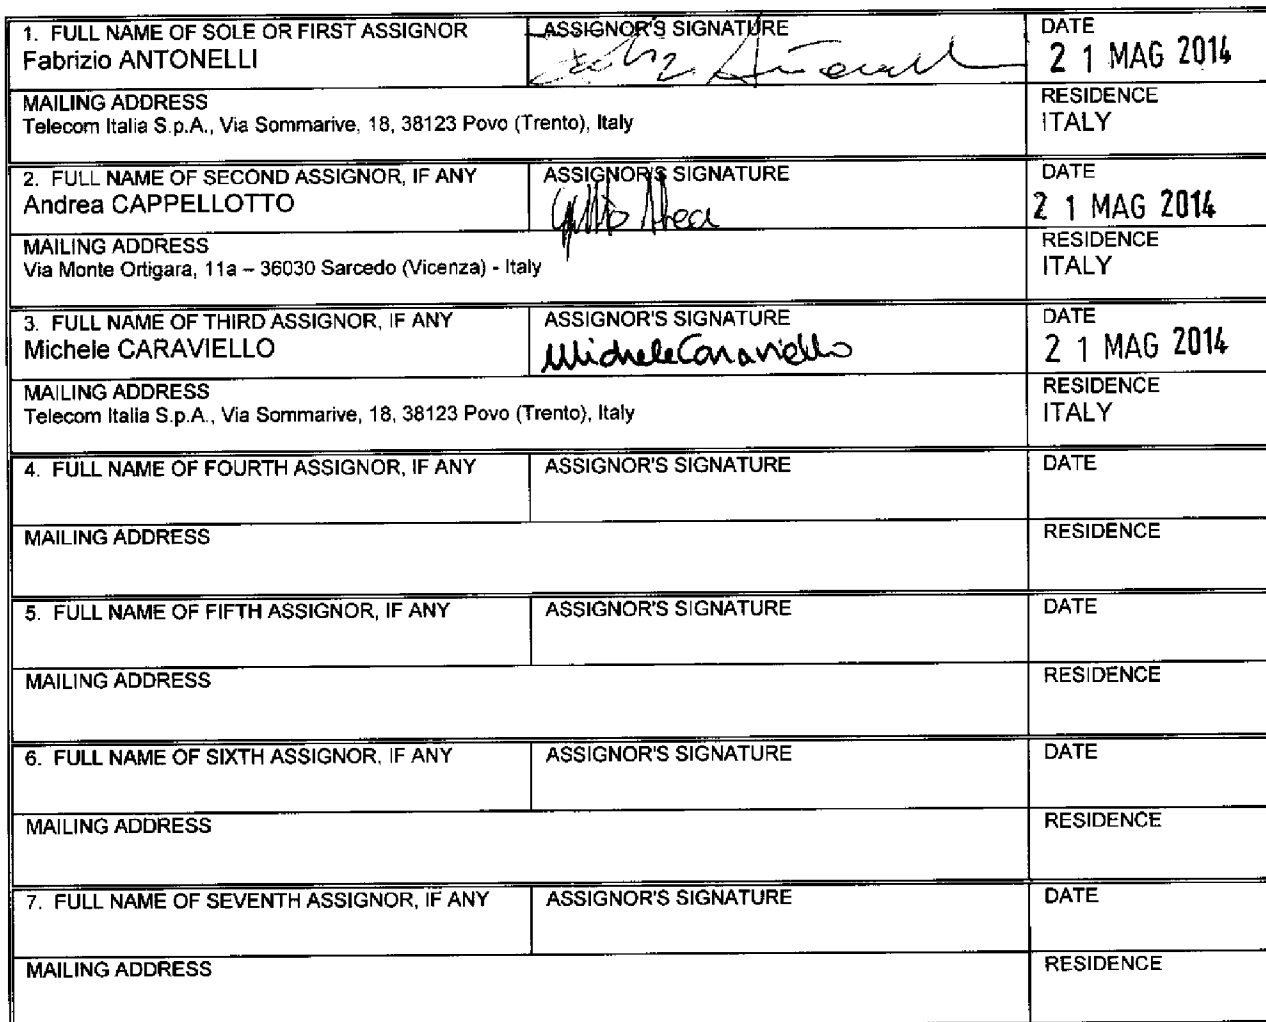 1. FULL NAME OF SOLE OR FIRST ASSIGNOR
Fabrizio ANTONELLI
ASSIGNOR'S SIGNATURE
DATE
21 MAG 2014
MAILING ADDRESS
Telecom Italia S.p.A., Via Sommarive, 18, 38123 Povo (Trento), Italy
RESIDENCE
ITALY
2. FULL NAME OF SECOND ASSIGNOR, IF ANY
Andrea CAPPELLOTTO
ASSIGNOR'S SIGNATURE
DATE
21 MAG 2014
MAILING ADDRESS
Via Monte Ortigara, 11a – 36030 Sarcedo (Vicenza) - Italy
RESIDENCE
ITALY
3. FULL NAME OF THIRD ASSIGNOR, IF ANY
Michele CARAVIELLO
ASSIGNOR'S SIGNATURE
Michele Caraviello
DATE
21 MAG 2014
MAILING ADDRESS
Telecom Italia S.p.A., Via Sommarive, 18, 38123 Povo (Trento), Italy
RESIDENCE
ITALY
4. FULL NAME OF FOURTH ASSIGNOR, IF ANY
ASSIGNOR'S SIGNATURE
DATE
MAILING ADDRESS
RESIDENCE
5. FULL NAME OF FIFTH ASSIGNOR, IF ANY
ASSIGNOR'S SIGNATURE
DATE
MAILING ADDRESS
RESIDENCE
6. FULL NAME OF SIXTH ASSIGNOR, IF ANY
ASSIGNOR'S SIGNATURE
DATE
MAILING ADDRESS
RESIDENCE
7. FULL NAME OF SEVENTH ASSIGNOR, IF ANY
ASSIGNOR'S SIGNATURE
DATE
MAILING ADDRESS
RESIDENCE